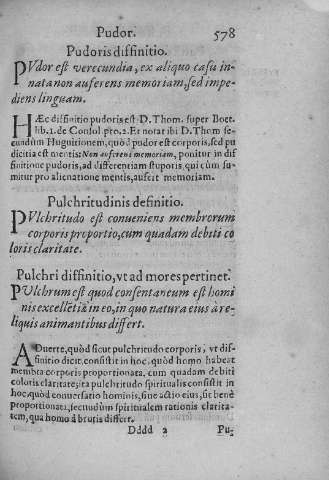 Pudor. 578
Pudoris diffinitio.
PVdor est verecundia, ex aliquo casu in-
nata non auferens memoriam, sed impe-
diens linguam.
HÆc diffinitio pudoris est D. Thom. super Boet.
lib. 1. de Consol pro. 2. Et notat ibi D. Thom se-
cundùm Huguitionem, quòd pudor est corporis, sed pu
dicitia est mentis: Non auferens memoriam, ponitur in dif
finitione pudoris, ad differentiam stuporis, qui cùm su-
mitur pro alienatione mentis, aufert memoriam.
Pulchritudinis definitio.
PVlchritudo est conueniens membrorum
corporis proportio, cum quadam debiti co
loris claritate.
Pulchri diffinitio, vt ad mores pertinet.
PVlchrum est quod consentaneum est homi
nis excellẽtiæ in eo, in quo natura eius à re-
liquis animantibus differt.
ADuerte, quòd sicut pulchritudo corporis, vt dif-
finitio dicit, consistit in hoc, quòd homo habeat
membra corporis proportionata, cum quadam debiti
coloris claritate; ita pulchritudo spiritualis consistit in
hoc, quòd conuersatio hominis, siue actio eius, sit benè
proportionata, secundùm spiritualem rationis clarita-
tem, qua homo à brutis differt.
Dddd 2 Pu-